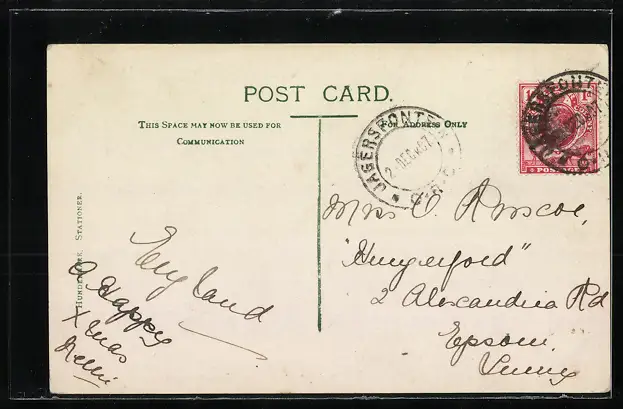 POST CARD.
THIS SPACE MAY NOW BE USED FOR
COMMUNICATION
FOR ADDRESS ONLY
JAGERSFONTEIN
2 DEC 07
O.R.C.
England
A Happy
Xmas
Nellie
Mrs C. Armscoe,
"Hungerford"
2 Alexandria Rd
Epsom,
Surrey
STATIONER.